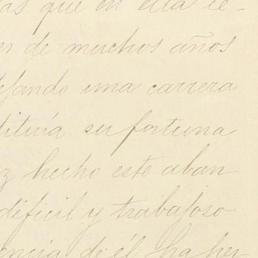 as que en ella re-
er de muchos años
dejando una carrera
titüia su fortuna
z hecho este aban
dificil y trabajoso
encia de él ha her